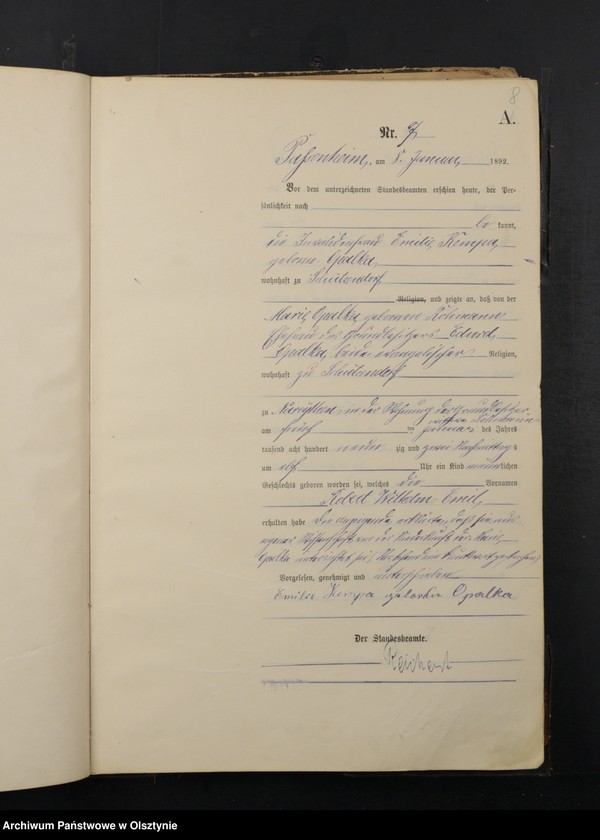 8
A.
Nr. 7
Passenheim, am 8. Januar 1892.
Vor dem unterzeichneten Standesbeamten erschien heute, der Per-
sönlichkeit nach
be kannt,
die Emilie Kempa,
geborne Opalka,
wohnhaft zu
Religion, und zeigte an, daß von der
Marie Opalka geborenen
Ehefrau des Grundbesitzers Eduard
Opalka, beide evangelischer Religion,
wohnhaft zu
zu in der Wohnung
am fünf ten Januar des Jahres
tausend acht hundert neun zig und zwei Nachmittags
um elf Uhr ein Kind männlichen
Geschlechts geboren worden sei, welches die Vornamen
Wilhelm Emil,
erhalten habe Die Anzeigende erklärte, daß sie aus
eigener Wissenschaft von der Niederkunft der Marie
Opalka unterrichtet sei.
Vorgelesen, genehmigt und unterschrieben
Emilie Kempa geborene Opalka
Der Standesbeamte.
Reichert
Archiwum Państwowe w Olsztynie